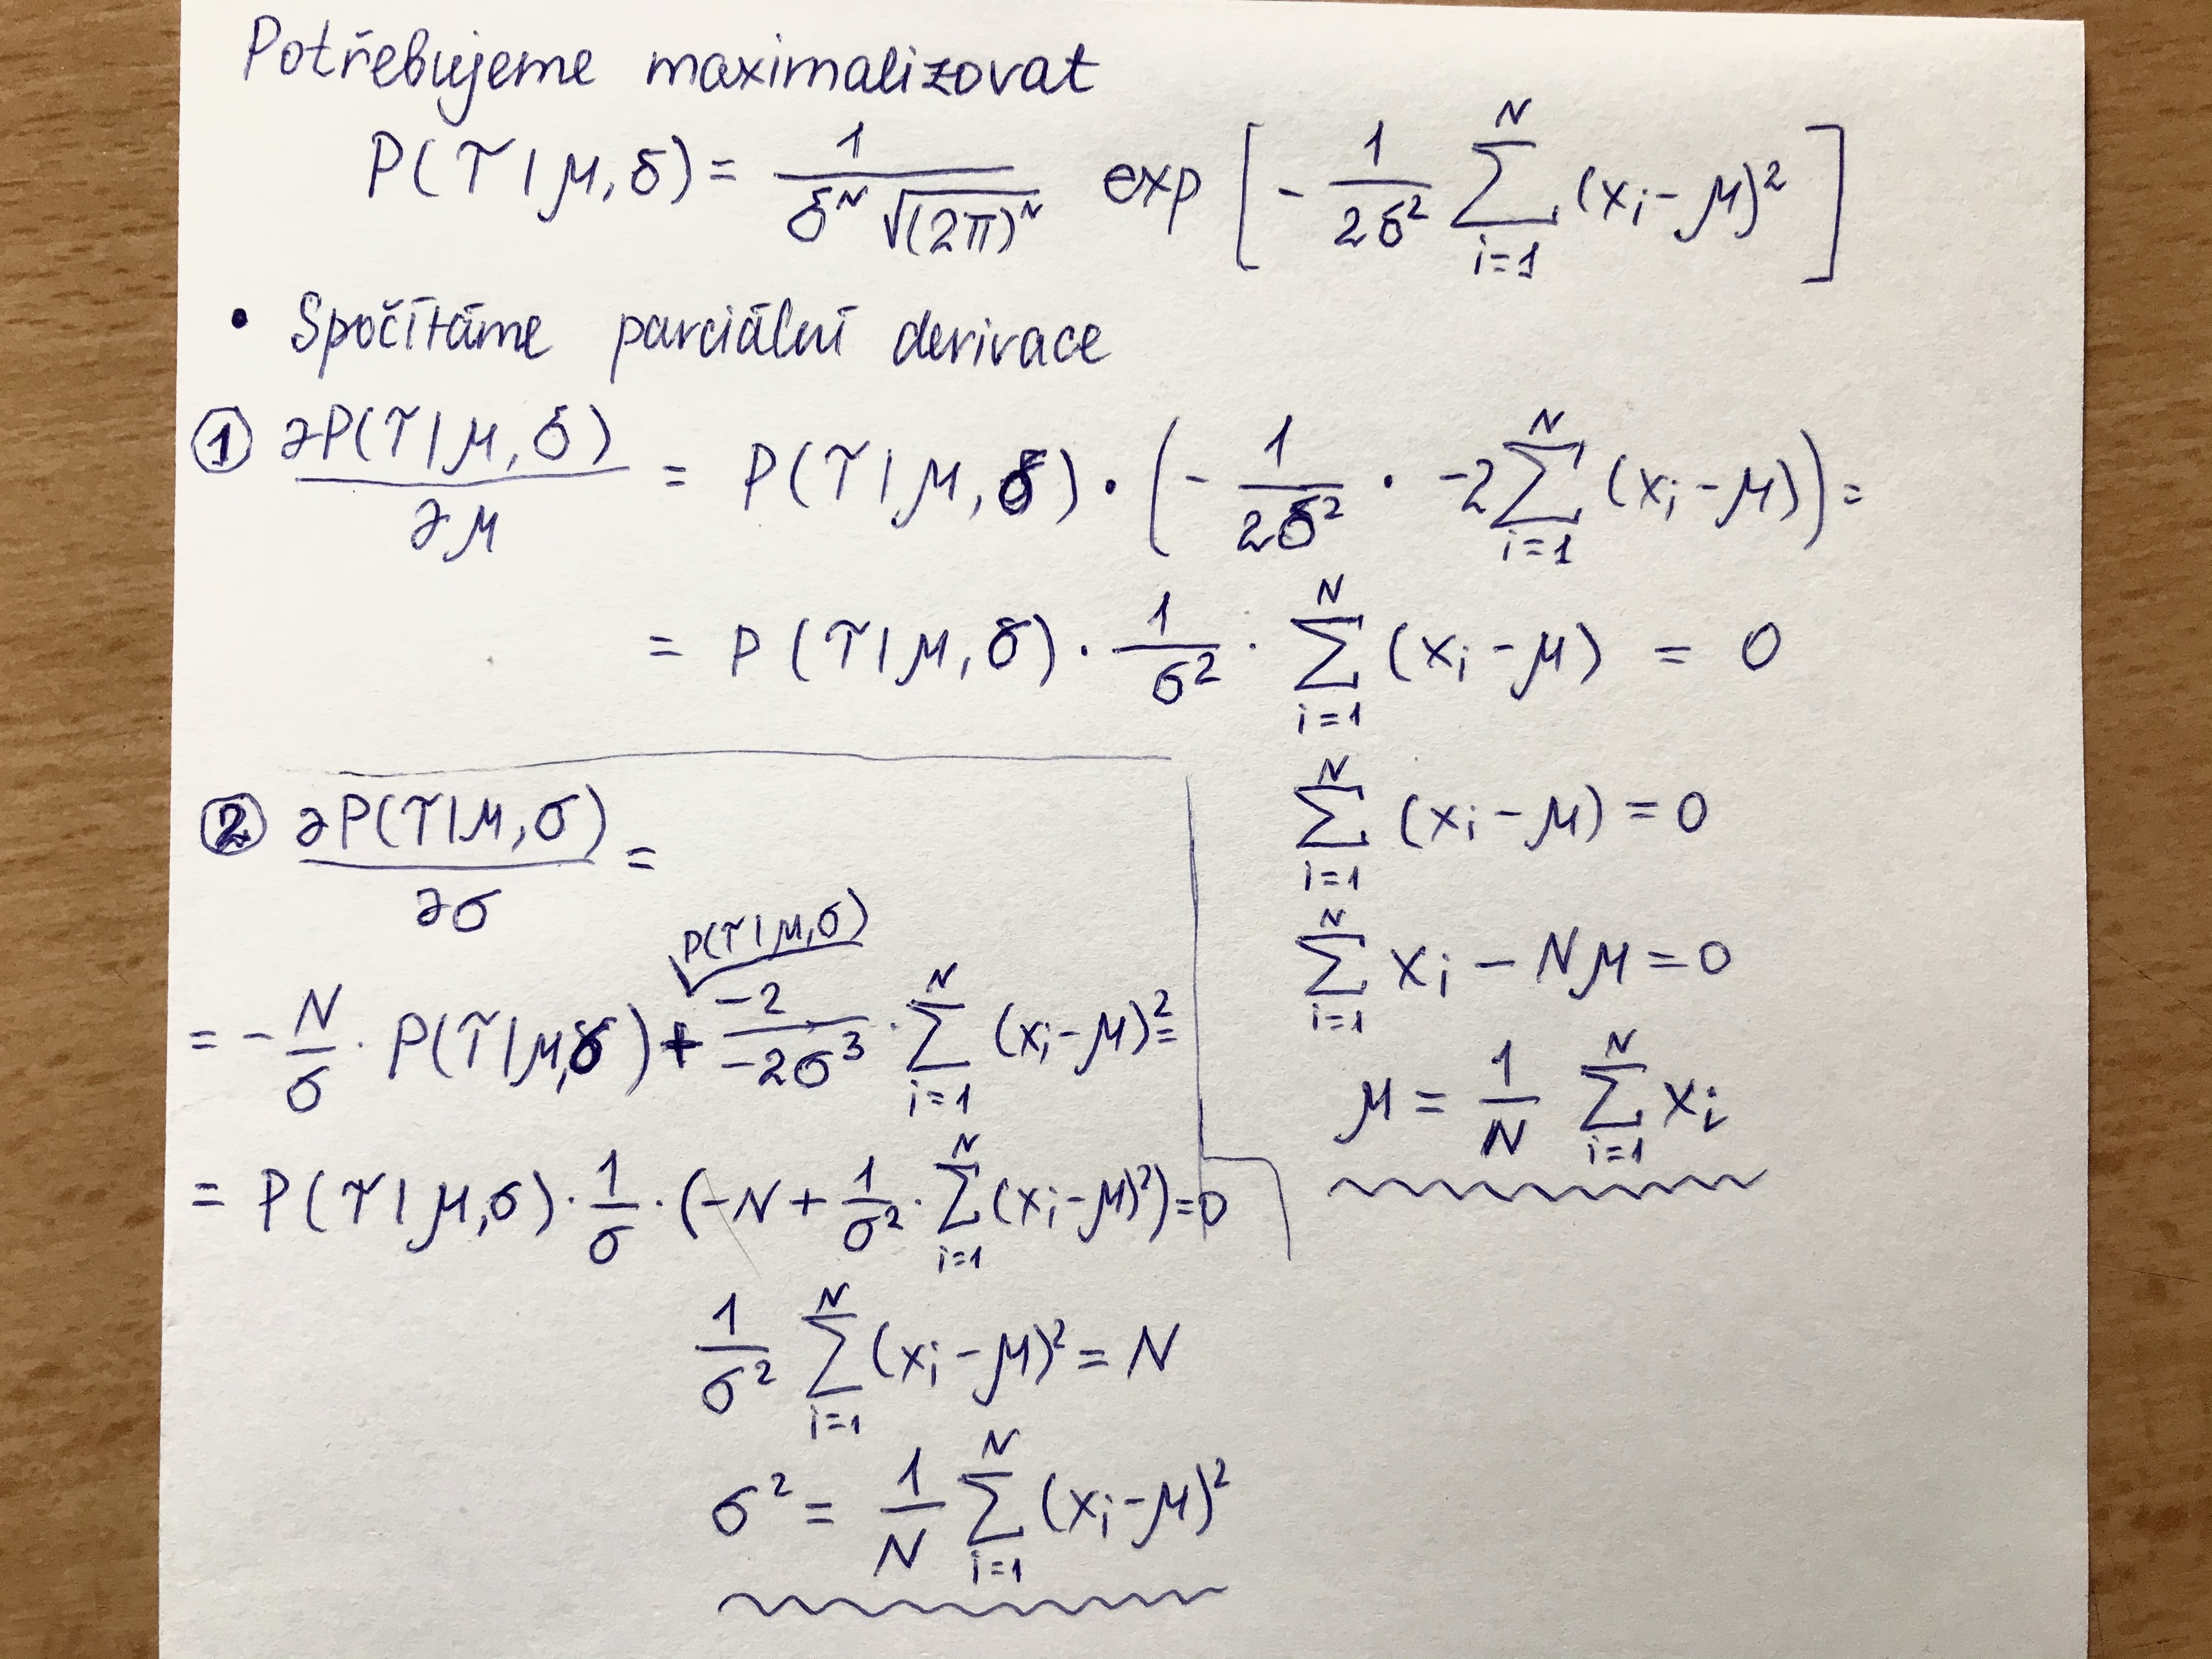 Potřebujeme maximalizovat
P(T | μ, σ) = \frac{1}{σ^N \sqrt{(2π)^N}} exp [ - \frac{1}{2σ^2} \sum_{i=1}^{N} (x_i - μ)^2 ]
• Spočítáme parciální derivace
① \frac{∂P(T | μ, σ)}{∂μ} = P(T | μ, σ) · ( - \frac{1}{2σ^2} · -2 \sum_{i=1}^{N} (x_i - μ) ) =
= P(T | μ, σ) · \frac{1}{σ^2} · \sum_{i=1}^{N} (x_i - μ) = 0
\sum_{i=1}^{N} (x_i - μ) = 0
\sum_{i=1}^{N} x_i - Nμ = 0
μ = \frac{1}{N} \sum_{i=1}^{N} x_i
② \frac{∂P(T | μ, σ)}{∂σ} =
P(T | μ, σ)
= - \frac{N}{σ} · P(T | μ, σ) + \frac{-2}{-2σ^3} · \sum_{i=1}^{N} (x_i - μ)^2 =
= P(T | μ, σ) · \frac{1}{σ} · (-N + \frac{1}{σ^2} · \sum_{i=1}^{N} (x_i - μ)^2) = 0
\frac{1}{σ^2} \sum_{i=1}^{N} (x_i - μ)^2 = N
σ^2 = \frac{1}{N} \sum_{i=1}^{N} (x_i - μ)^2